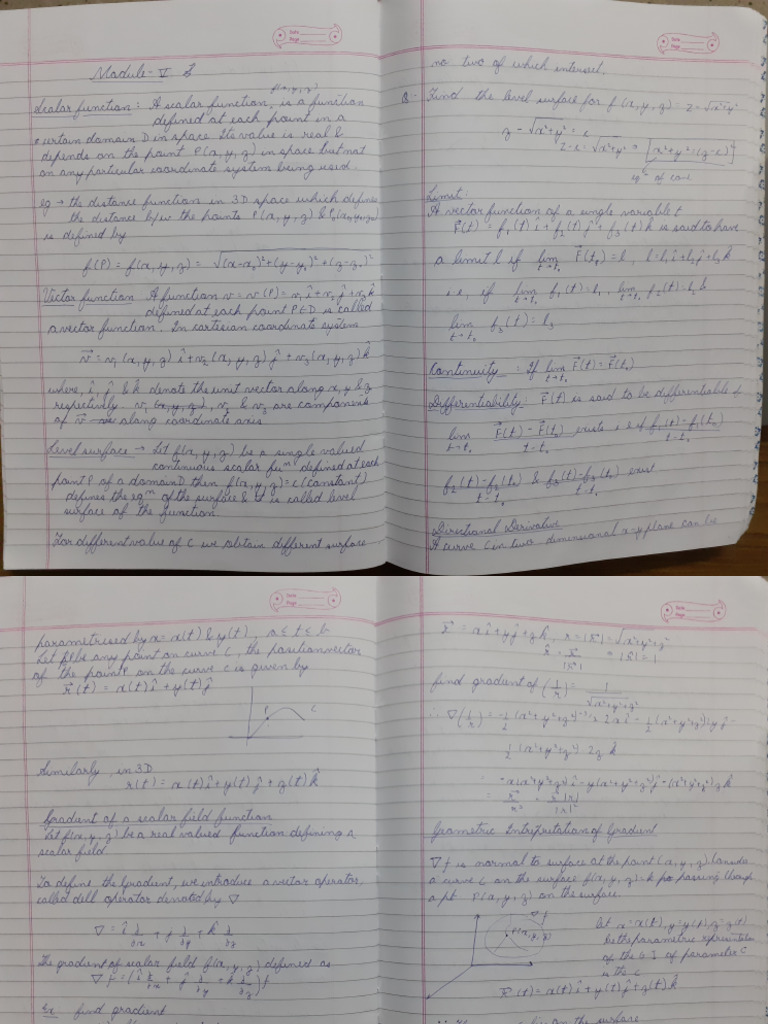 Module - V
f(x,y,z)
Scalar function: A scalar function, is a function
defined at each point in a
certain domain D in space. Its value is real &
depends on the point P(x,y,z) in space but not
on any particular coordinate system being used.
eg → the distance function in 3D space which defines
the distance b/w the points P(x,y,z) & P₀(x₀,y₀,z₀)
is defined by
f(P) = f(x,y,z) = √(x-x₀)²+(y-y₀)²+(z-z₀)²
Vector function A function v = v(P) = v₁î+v₂ĵ+v₃k̂
defined at each point P∈D is called
a vector function. In cartesian coordinate system
v⃗ = v₁(x,y,z)î+v₂(x,y,z)ĵ+v₃(x,y,z)k̂
where, î, ĵ & k̂ denote the unit vector along x, y & z
respectively. v₁, v₂ & v₃ are components
of v⃗ along coordinate axis
Level surface → Let f(x,y,z) be a single valued
continuous scalar funⁿ defined at each
point P of a domain D then f(x,y,z)=c(constant)
defines the eqⁿ of the surface & is called level
surface of the function.
For different value of C we obtain different surface
Date
Page
no two of which intersect.
Q- Find the level surface for f(x,y,z) = z-√x²+y²
z-√x²+y² = c
z-c = √x²+y² = [x²+y²=(z-c)²]
eqⁿ of cone
Limit:
A vector function of a single variable t
F⃗(t) = f₁(t)î+f₂(t)ĵ+f₃(t)k̂ is said to have
a limit l if lim t→t₀ F⃗(t) = l, l=l₁î+l₂ĵ+l₃k̂
i.e, if lim t→t₀ f₁(t)=l₁, lim t→t₀ f₂(t)=l₂ &
lim t→t₀ f₃(t) = l₃
Continuity : If lim t→t₀ F⃗(t) = F⃗(t₀)
Differentiability: F⃗(t) is said to be differentiable if
lim t→t₀ F⃗(t)-F⃗(t₀) / t-t₀ exists, i.e if f₁(t)-f₁(t₀) / t-t₀
f₂(t)-f₂(t₀) / t-t₀ & f₃(t)-f₃(t₀) / t-t₀ exist
Directional Derivative
A curve C in two dimensional x-y plane can be
Date
Page
parametrised by x = x(t) & y(t), a ≤ t ≤ b
Let P be any point on curve C, the position vector
of the point P on the curve C is given by
r⃗(t) = x(t)î+y(t)ĵ
P
C
Similarly, in 3D
r(t) = x(t)î+y(t)ĵ+z(t)k̂
Gradient of a scalar field function
Let f(x,y,z) be a real valued function defining a
scalar field.
To define the Gradient, we introduce a vector operator,
called dell operator denoted by ∇
∇ = î ∂/∂x + ĵ ∂/∂y + k̂ ∂/∂z
The gradient of scalar field f(x,y,z) defined as
∇f = (î ∂/∂x + ĵ ∂/∂y + k̂ ∂/∂z) f
Ex find gradient
Date
Page
r⃗ = xî+yĵ+zk̂, r=|r⃗|=√x²+y²+z²
r̂ = r⃗/|r⃗| = |r̂| = 1
find gradient of (1/r) = 1/√x²+y²+z²
½(x²+y²+z²) 2z k̂
Geometric Intrepretation of Gradient
∇f is normal to surface at the point (x,y,z) Consider
a curve C on the surface f(x,y,z)=k passing though
a pt P(x,y,z) on the surface.
∇f
P(x,y,z)
Let x=x(t), y=y(t), z=z(t)
be the parametric representation
of the
r⃗(t) = x(t)î+y(t)ĵ+z(t)k̂
on the surface